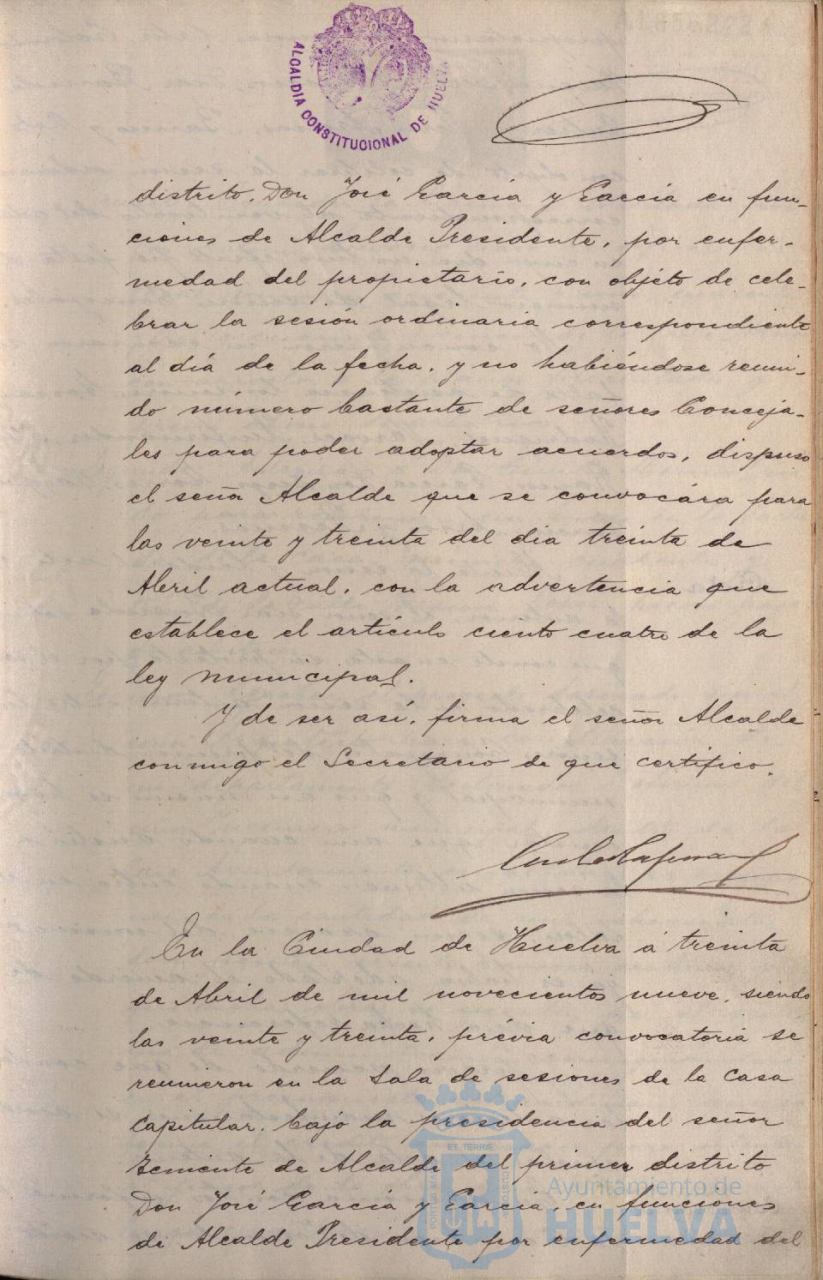 ALCALDIA CONSTITUCIONAL DE HUELVA
distrito. Don José García y García en fun-
ciones de Alcalde Presidente, por enfer-
medad del propietario, con objéto de cele-
brar la sesión ordinaria correspondiente
al día de la fecha, y no habiéndose reuni-
do número bastante de señores Conceja-
les para poder adoptar acuerdos, dispuso
el señor Alcalde que se convocára para
las veinte y treinta del dia treinta de
Abril actual, con la advertencia que
establece el artículo ciento cuatro de la
ley municipal.
Y de ser así, firma el señor Alcalde
conmigo el Secretario de que certifico.
En la Ciudad de Huelva á treinta
de Abril de mil novecientos nueve, siendo
las veinte y treinta, prévia convocatoria se
reunieron en la Sala de sesiones de la Casa
Capitular, bajo la presidencia del señor
Teniente de Alcalde del primer distrito
Don José García y García, en funciones
de Alcalde Presidente por enfermedad del
Ayuntamiento de
HUELVA